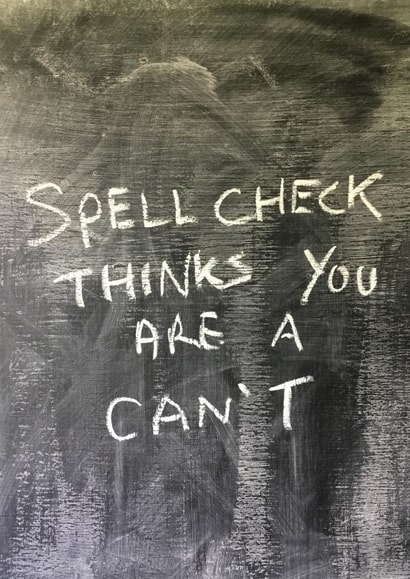 SPELL CHECK
THINKS YOU
ARE A
CAN'T